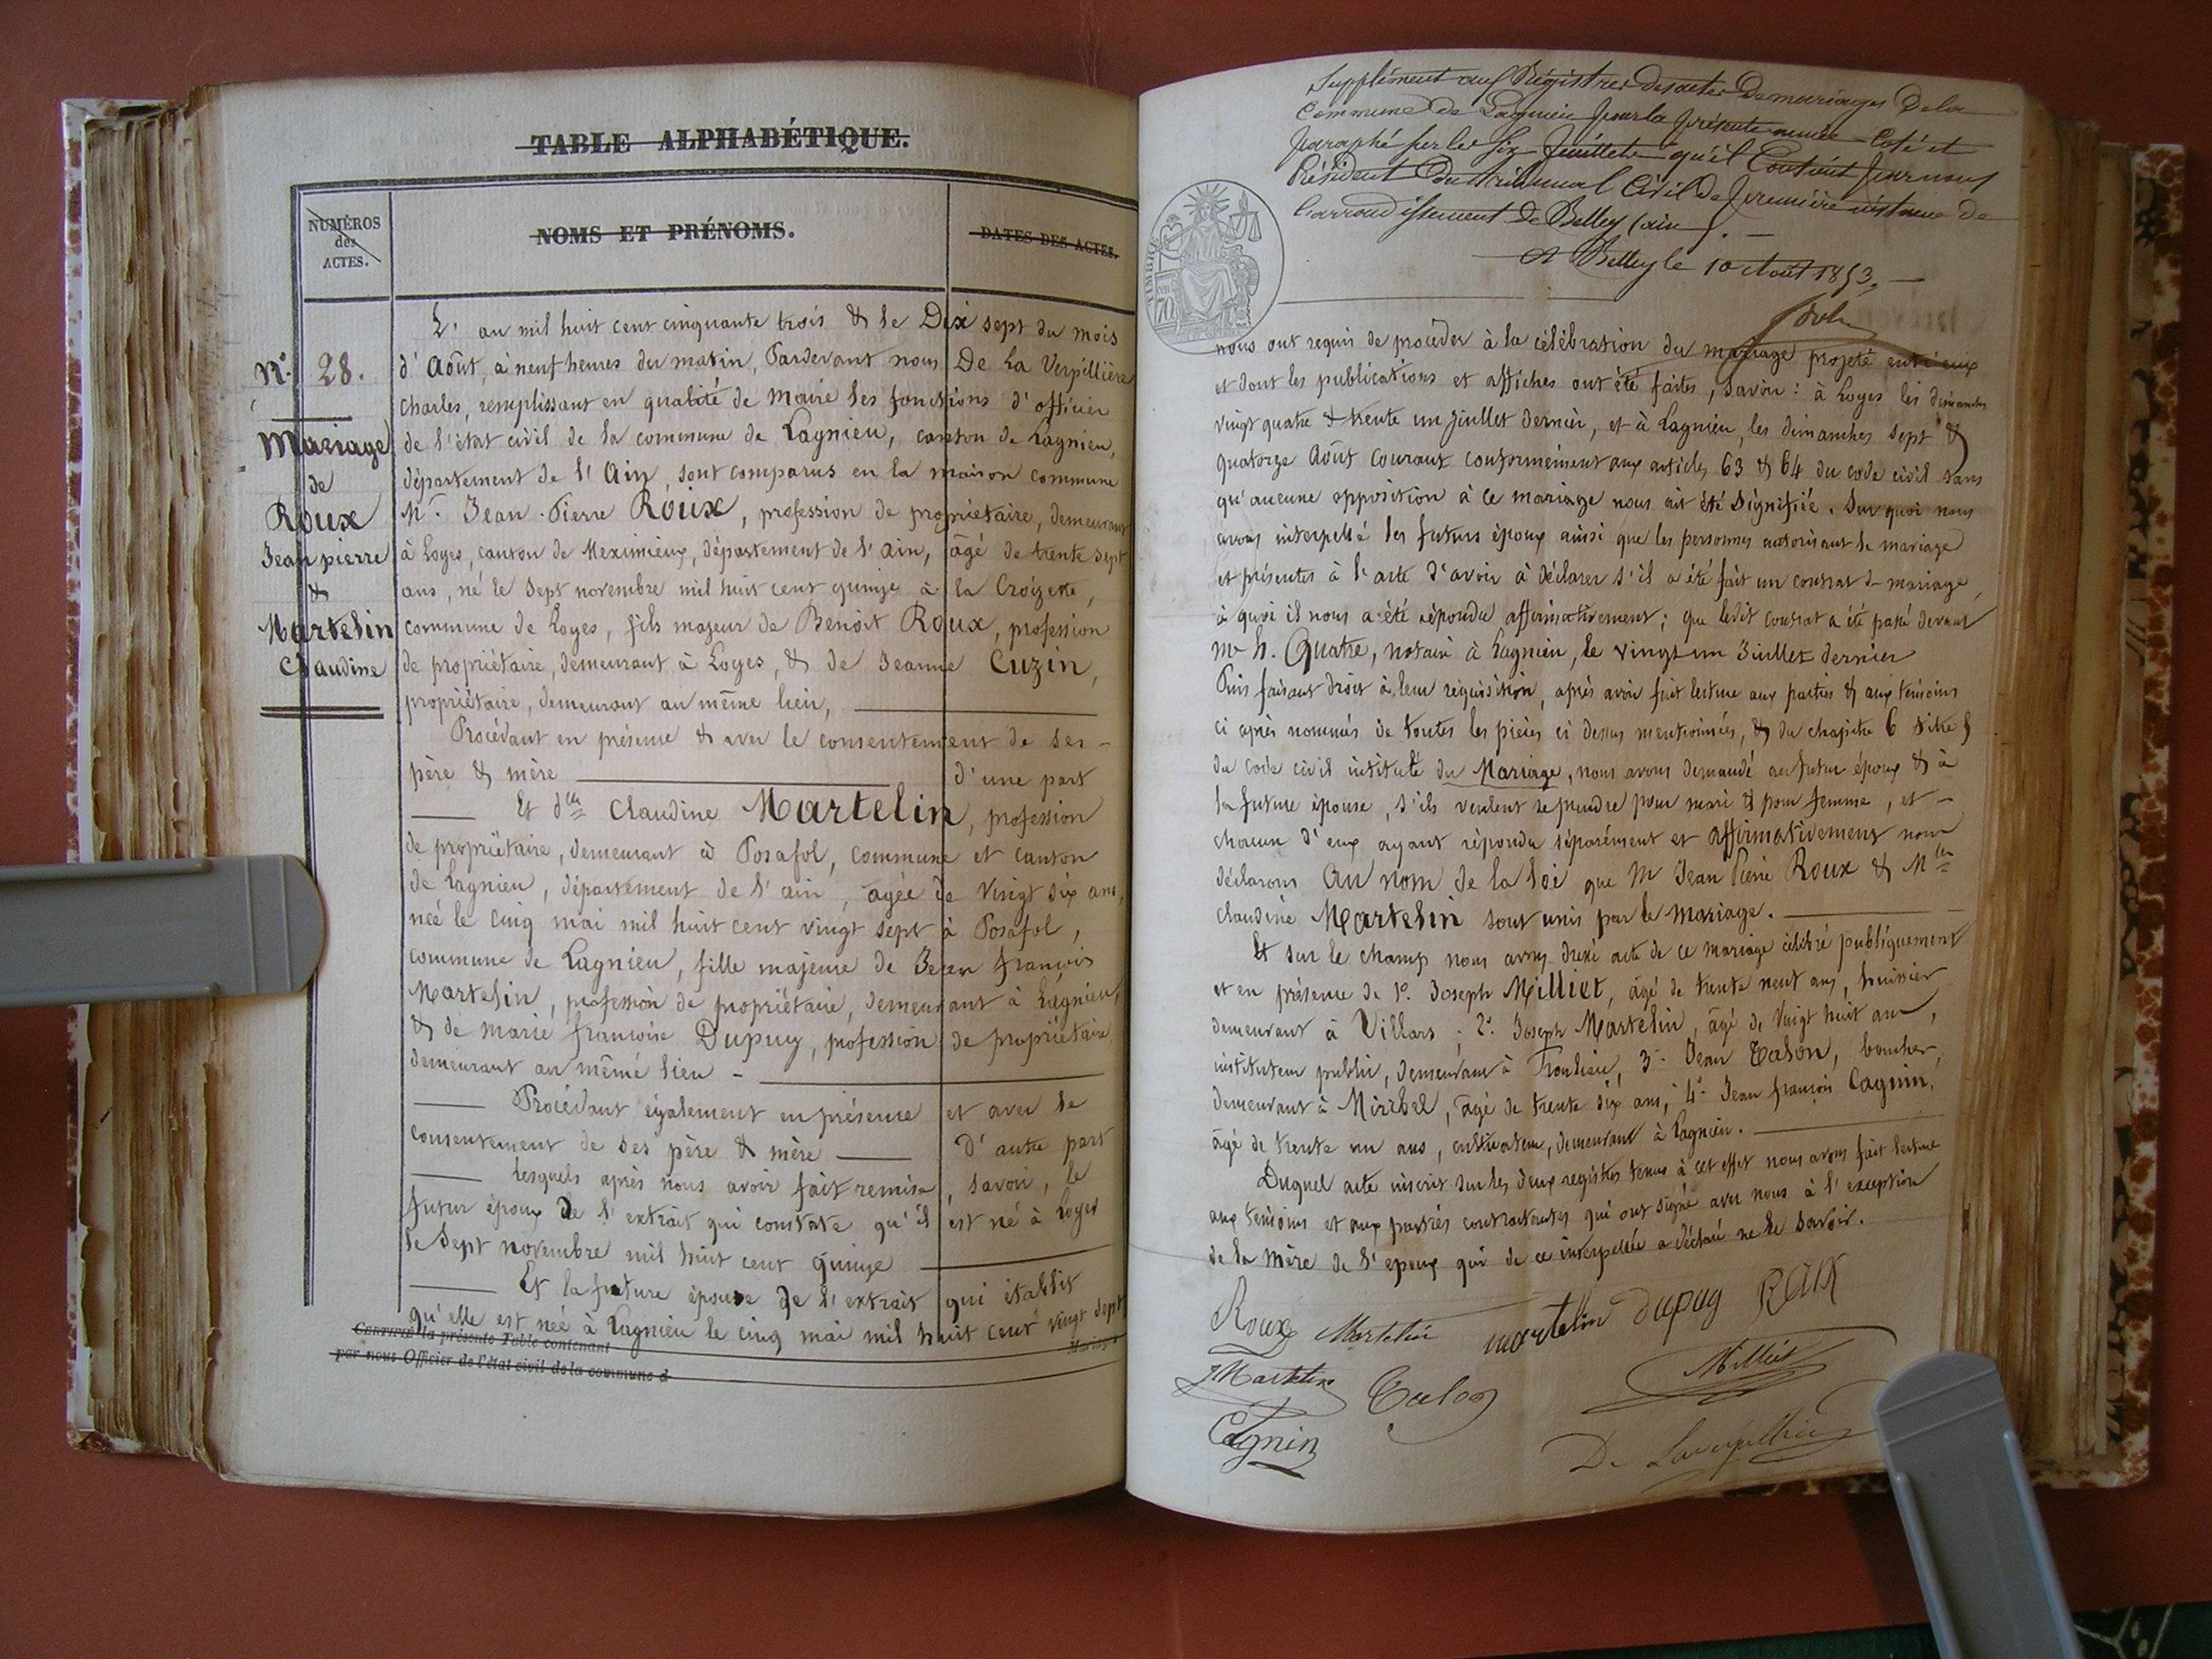 TABLE ALPHABÉTIQUE.
NUMÉROS
des
ACTES.
NOMS ET PRÉNOMS.
DATES DES ACTES.
N° 28.
Mariage
de
Roux
Jean pierre
&
Martelin
Claudine
L'an mil huit cent cinquante trois & le Dix sept du mois
d'Août, à neuf heures du matin, Pardevant nous De La Verpillière
Charles, remplissant en qualité de Maire les fonctions d'officier
de l'état civil de la commune de Lagnieu, canton de Lagnieu,
département de l'Ain, sont comparus en la maison commune
Mr. Jean-Pierre Roux, profession de propriétaire, demeurant
à Loyes, canton de Meximieux, département de l'ain, âgé de trente sept
ans, né le sept novembre mil huit cent quinze à la Croizette,
commune de Loyes, fils majeur de Benoît Roux, profession
de propriétaire, demeurant à Loyes, & de Jeanne Cuzin,
propriétaire, demeurant au même lieu,
Procédant en présence & avec le consentement de ses
père & mère d'une part
Et dlle Claudine Martelin, profession
de propriétaire, demeurant à Posafol, commune et canton
de Lagnieu, département de l'ain, agée de vingt six ans,
née le cinq mai mil huit cent vingt sept à Posafol,
commune de Lagnieu, fille majeure de Jean françois
Martelin, profession de propriétaire, demeurant à Lagnieu,
& de marie françoise Dupuy, profession de propriétaire
demeurant au même lieu -
Procédant également en présence et avec le
consentement de ses père & mère d'autre part
lesquels après nous avoir fait remise, savoir, le
futur époux de l'extrait qui constate qu'il est né à Loyes
le sept novembre mil huit cent quinze
Et la future épouse de l'extrait qui établit
qu'elle est née à Lagnieu le cinq mai mil huit cent vingt sept
la présente Table contenant
par nous Officier de l'état civil de la commune d
Supplément aux Régistres des actes de mariages de la
Commune de Lagnieu pour la présente année Coté et
paraphé sur les six feuillets qu'il Contient par nous
Président du tribunal Civil de première instance de
l'arrondissement de Belley (ain).
A Belley le 10 Août 1853.
nous ont requis de procéder à la célébration du mariage projeté entr'eux
et dont les publications et affiches ont été faites, savoir : à Loyes les dimanches
vingt quatre & trente un juillet dernier, et à Lagnieu, les dimanches sept &
quatorze Août courant conformément aux articles 63 & 64 du code civil sans
qu'aucune opposition à ce mariage nous ait été signifiée. Sur quoi nous
avons interpellé les futurs époux ainsi que les personnes autorisant le mariage
et présentes à l'acte d'avoir à déclarer s'il a été fait un contrat de mariage,
à quoi il nous a été répondu affirmativement ; que ledit contrat a été passé devant
me h. Quatre, notaire à Lagnieu, le vingt un Juillet dernier
Puis faisant droit à leur réquisition, après avoir fait lecture aux parties & aux témoins
ci après nommés de toutes les pièces ci dessus mentionnées, & du chapitre 6 titre 5
du code civil intitulé du Mariage, nous avons demandé au futur époux & à
la future épouse, s'ils veulent se prendre pour mari & pour femme, et -
chacun d'eux ayant répondu séparément et affirmativement nous
déclarons Au nom de la loi que Mr Jean Pierre Roux & Mlle
claudine Martelin sont unis par le mariage.
Et sur le champ nous avons dressé acte de ce mariage célébré publiquement
et en présence de 1°. Joseph Milliet, âgé de trente neuf ans, huissier
demeurant à Villars ; 2°. Joseph Martelin, âgé de Vingt huit ans,
instituteur public, demeurant à , 3° Jean Talon, boucher,
demeurant à Miribel, âgé de trente six ans ; 4° Jean françois Cagnin,
âgé de trente un ans, cultivateur, demeurant à Lagnieu.
Duquel acte inscrit sur les deux registres tenus à cet effet nous avons fait lecture
aux témoins et aux parties contractantes qui ont signé avec nous à l'exception
de la mère de l'époux qui de ce interpellée a déclaré ne le savoir.
Roux Martelin martelin dupuy Roux
JMartelin Talon Milliet
Cagnin De Laverpillière